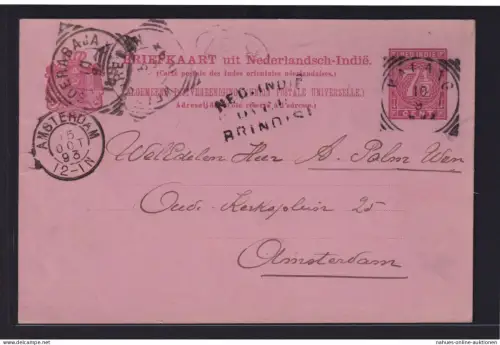 BRIEFKAART uit Nederlandsch-Indië.
(Carte postale des Indes orientales néerlandaises.)
ALGEMEENE POSTVEREENIGING (UNION POSTALE UNIVERSELLE)
Adreszijde.
NED.INDIE
OVER
BRINDISI
NED-INDIE
7½
PADANG
AMSTERDAM
5
OCT
93
12-1N
Welldelen Heer A. Palm Wzn
Oude Kerksplein 25
Amsterdam
delcampe.net
nahues-online-auktionen